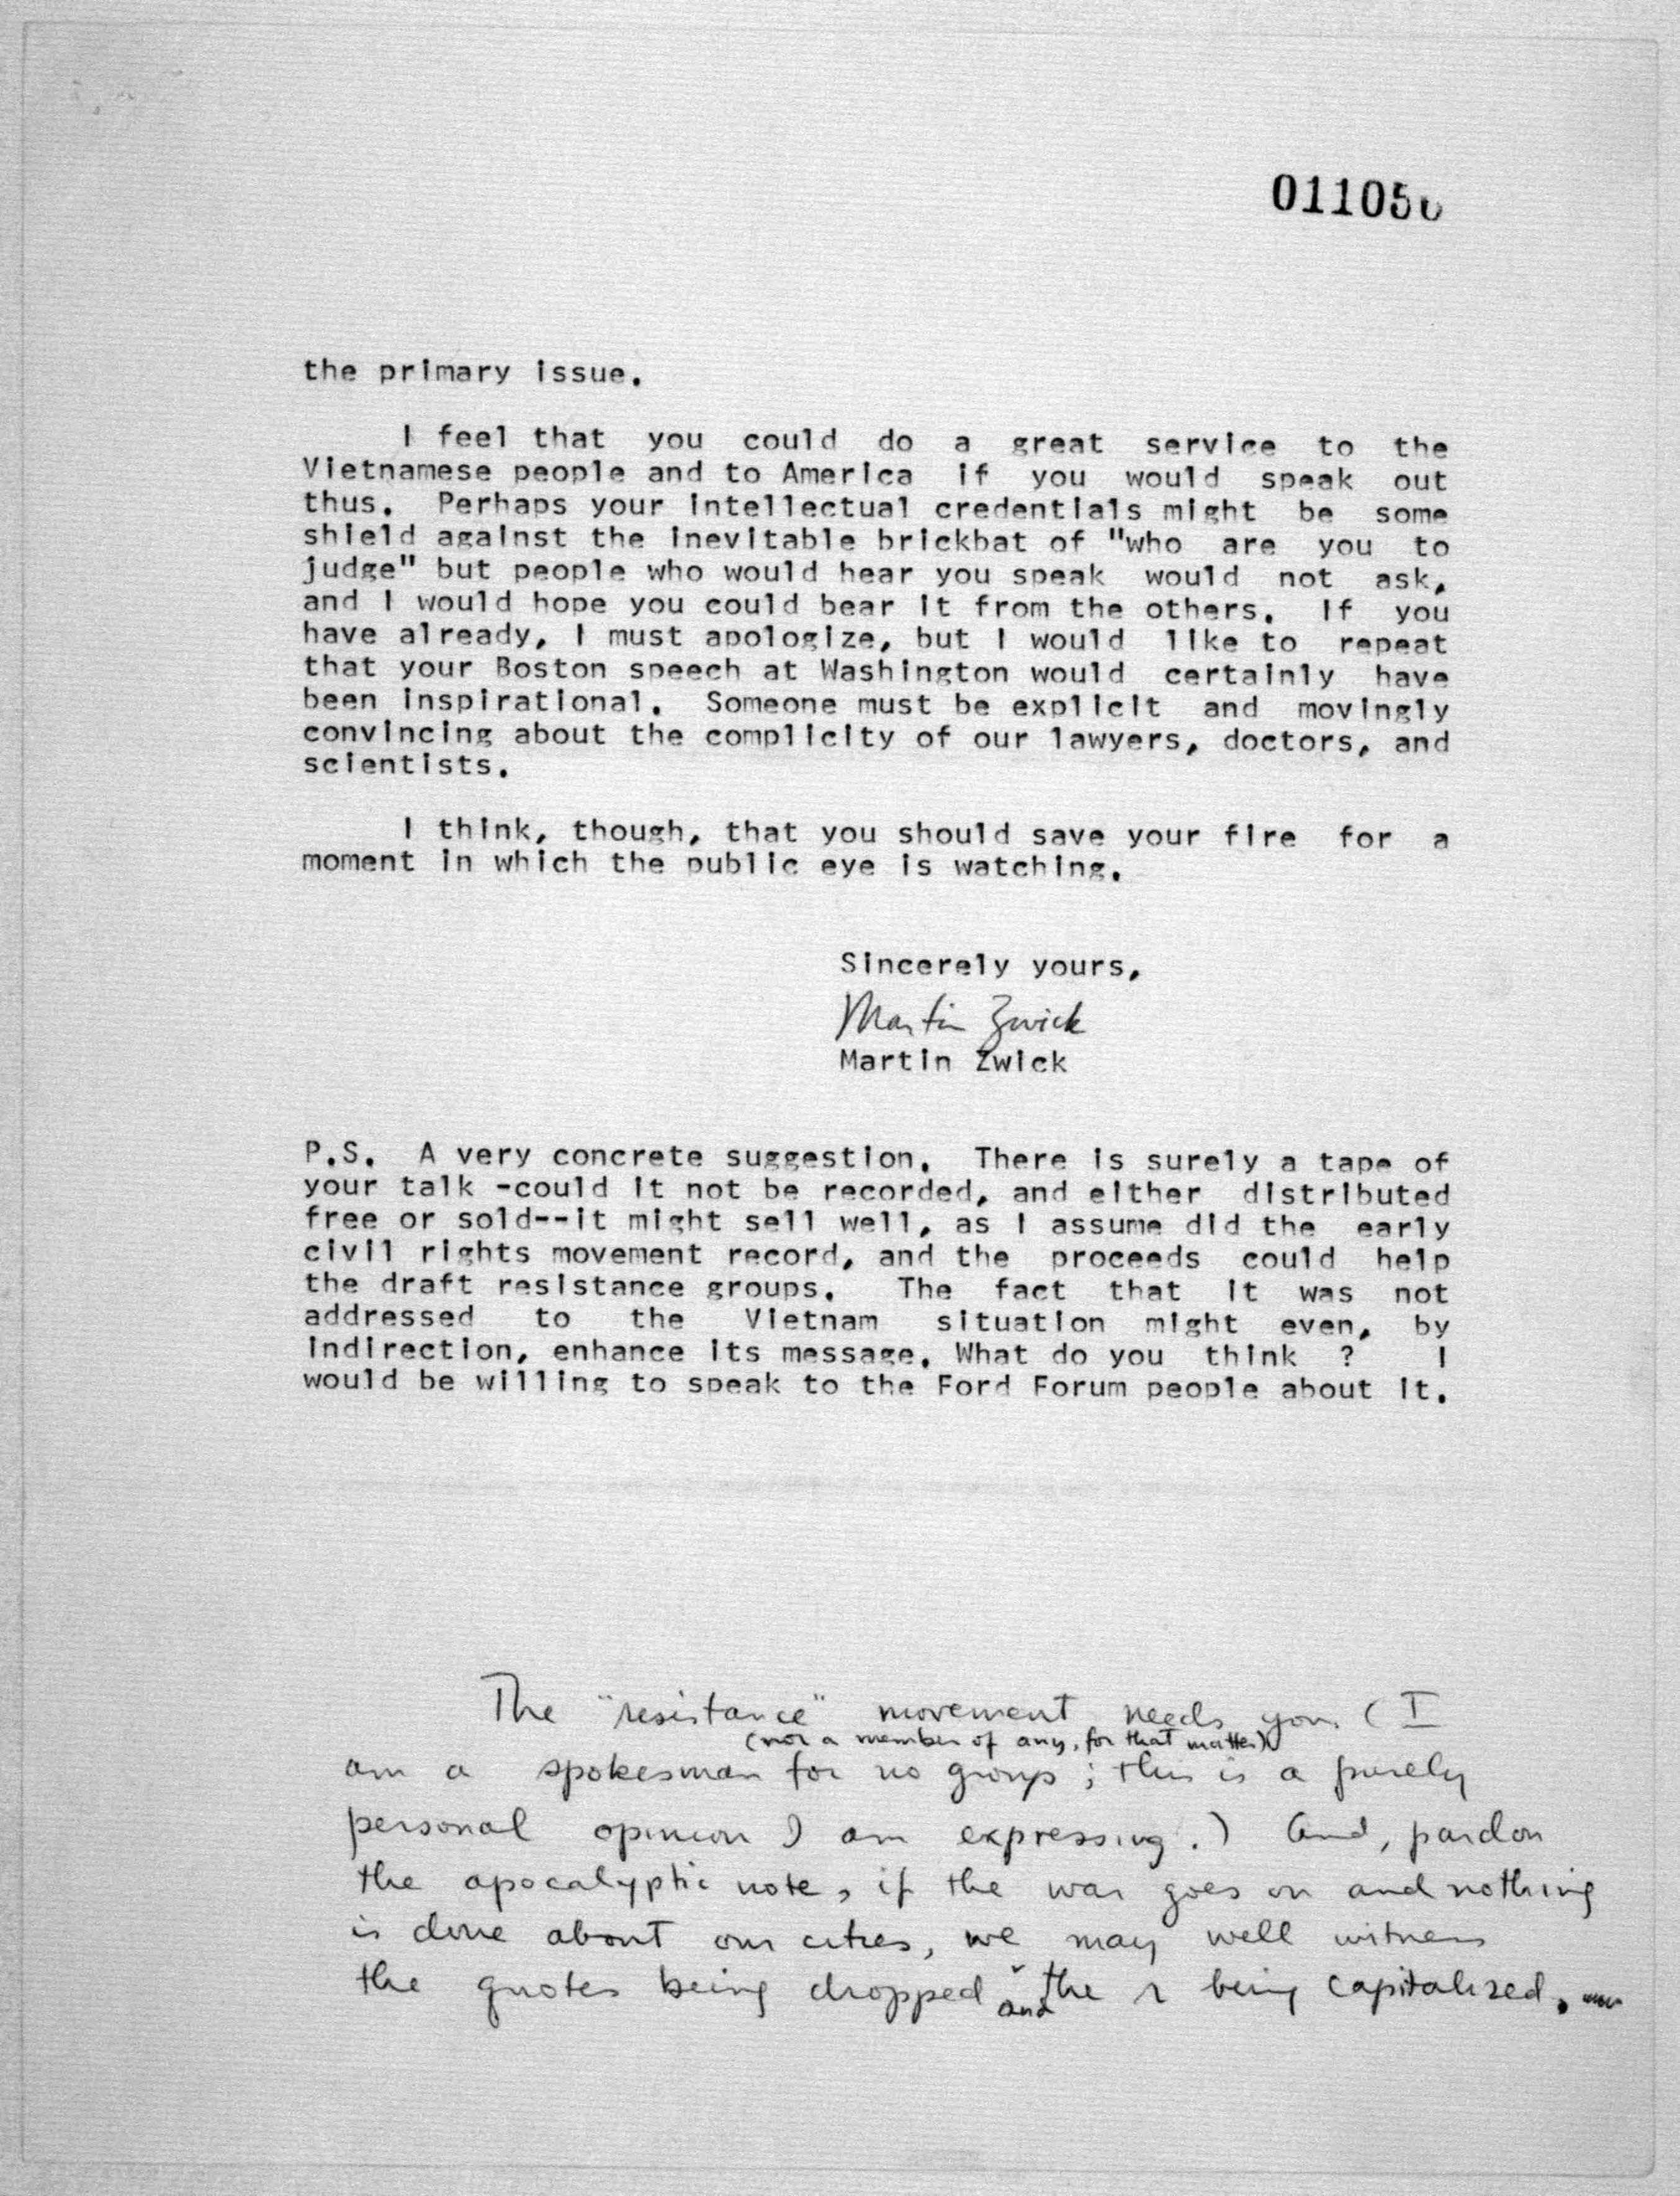 01105
the primary issue.
I feel that you could do a great service to the
Vietnamese people and to America if you would speak out
thus. Perhaps your intellectual credentials might be some
shield against the inevitable brickbat of "who are you to
judge" but people who would hear you speak would not ask,
and I would hope you could bear it from the others. If you
have already, I must apologize, but I would like to repeat
that your Boston speech at Washington would certainly have
been inspirational. Someone must be explicit and movingly
convincing about the complicity of our lawyers, doctors, and
scientists.
I think, though, that you should save your fire for a
moment in which the public eye is watching.
Sincerely yours,
Martin Zwick
Martin Zwick
P.S. A very concrete suggestion. There is surely a tape of
your talk -could it not be recorded, and either distributed
free or sold--it might sell well, as I assume did the early
civil rights movement record, and the proceeds could help
the draft resistance groups. The fact that it was not
addressed to the Vietnam situation might even, by
indirection, enhance its message. What do you think ? I
would be willing to speak to the Ford Forum people about it.
The "resistance" movement needs you (I
(nor a member of any, for that matter)
am a spokesman for no group; this is a purely
personal opinion I am expressing.) And, pardon
the apocalyptic note, if the war goes on and nothing
is done about our cities, we may well witness
the quotes being dropped and the r being capitalized.